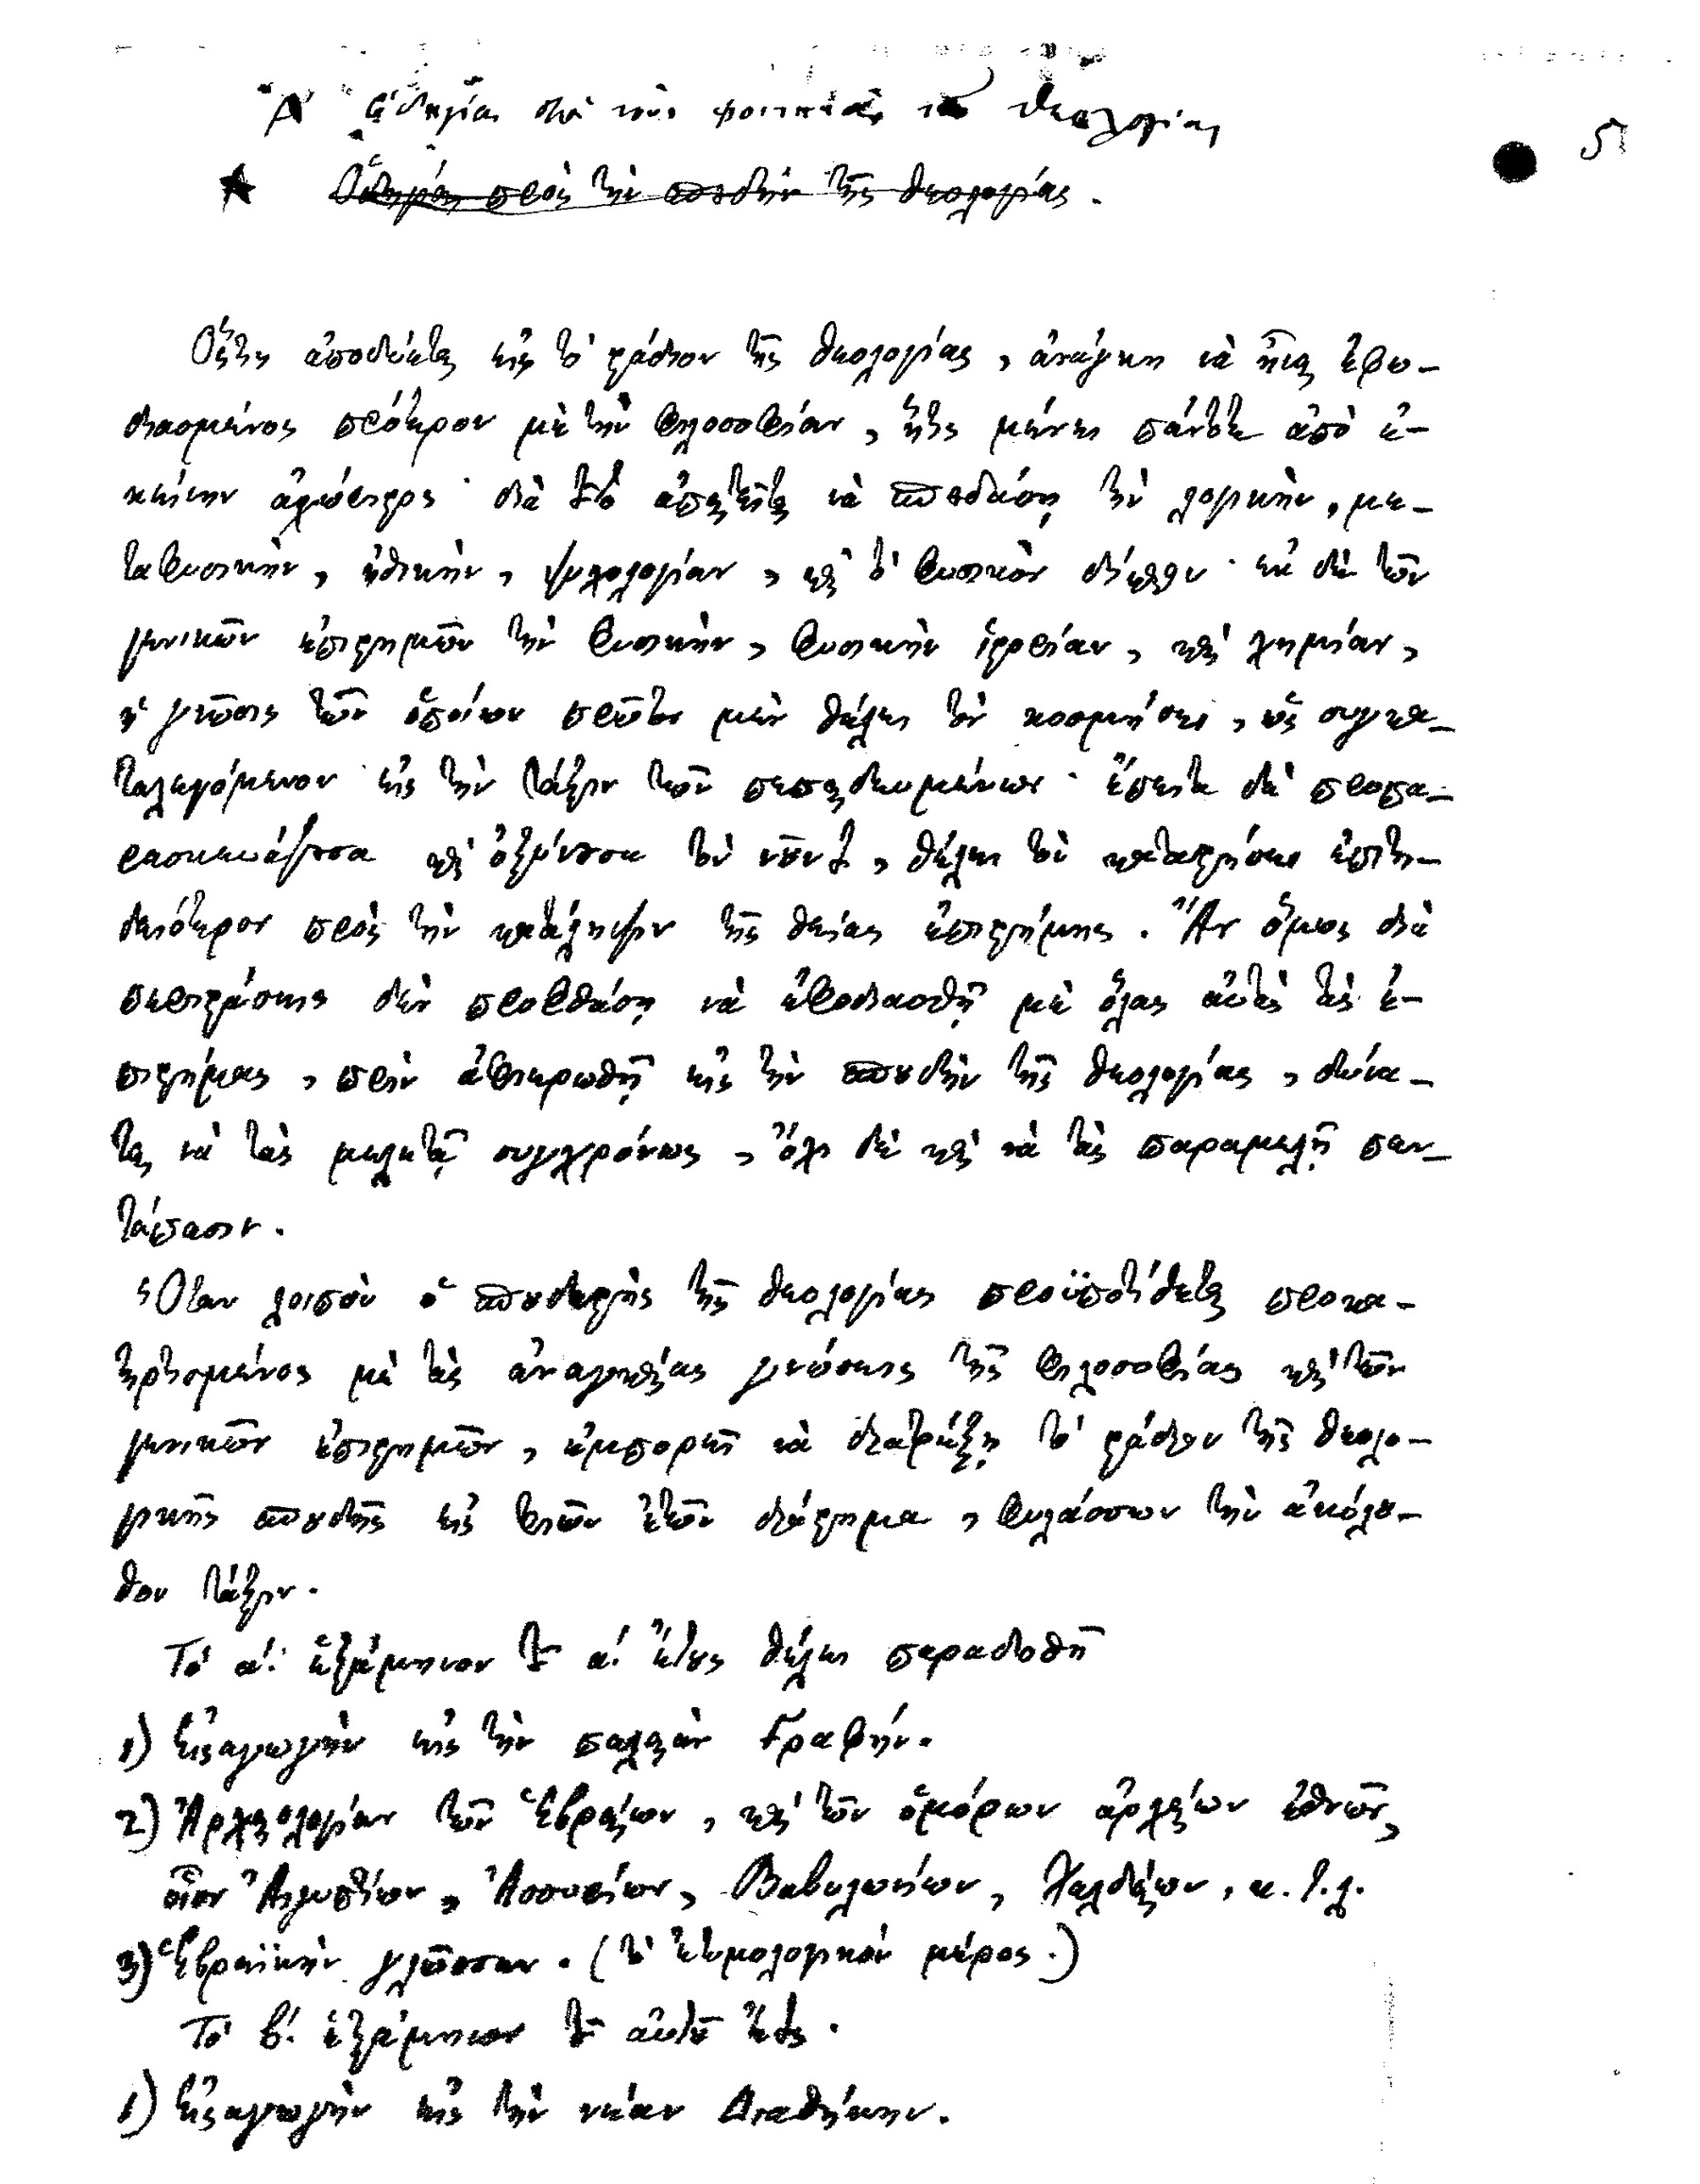 Α Ὁδηγίαι διὰ τοὺς φοιτητὰς τῆς Θεολογίας
51
Ὁδηγίαι πρὸς τὴν σπουδὴν τῆς θεολογίας.
Ὅςτις ἀποδύεται εἰς τὸ στάδιον τῆς θεολογίας, ἀνάγκη νὰ ἦναι ἐφω-
διασμένος πρότερον μὲ τὴν φιλοσοφίαν, ἥτις μένει πάντοτε ἀπὸ ἐ-
κείνην ἀχώριστος· διὰ τοῦτο ἀπαιτεῖται νὰ σπουδάσῃ τὴν λογικὴν, με-
ταφυσικὴν, ἠθικὴν, ψυχολογίαν, καὶ τὸ φυσικὸν δίκαιον· ἐκ δὲ τῶν
γενικῶν ἐπιστημῶν τὴν φυσικὴν, φυσικὴν ἱστορίαν, καὶ χημείαν,
ἡ γνῶσις τῶν ὁποίων πρῶτον μὲν θέλει τὸν κοσμήσει, ὡς συγκα-
ταλεγόμενον εἰς τὴν τάξιν τῶν πεπαιδευμένων· ἔπειτα δὲ προπα-
ρασκευάζουσα καὶ ὀξύνουσα τὸν νοῦν του, θέλει τὸν καταστήσει ἐπιτη-
δειότερον πρὸς τὴν κατάληψιν τῆς θείας ἐπιστήμης. Ἂν ὅμως διὰ
περιστάσεις δὲν προφθάσῃ νὰ ἐφοδιασθῇ μὲ ὅλας αὐτὰς τὰς ἐ-
πιστήμας, πρὶν ἀφιερωθῇ εἰς τὴν σπουδὴν τῆς θεολογίας, δύνα-
ται νὰ τὰς μελετᾷ συγχρόνως, ὄχι δὲ καὶ νὰ τὰς παραμελῇ παν-
τάπασιν.
Ὅταν λοιπὸν ὁ σπουδαστὴς τῆς θεολογίας προϋποτίθεται προκα-
τηρτισμένος μὲ τὰς ἀναγκαίας γνώσεις τῆς φιλοσοφίας καὶ τῶν
γενικῶν ἐπιστημῶν, ἐμπορεῖ νὰ διατρέξῃ τὸ στάδιον τῆς θεολο-
γικῆς σπουδῆς εἰς τριῶν ἐτῶν διάστημα, φυλάσσων τὴν ἀκόλου-
θον τάξιν.
Τὸ α΄. ἑξάμηνον τοῦ α΄. ἔτους θέλει παραδοθῆ
1) Εἰςαγωγὴν εἰς τὴν παλαιὰν Γραφήν.
2) Ἀρχαιολογίαν τῶν Ἑβραίων, καὶ τῶν ὁμόρων ἀρχαίων ἐθνῶν,
οἷον Αἰγυπτίων, Ἀσσυρίων, Βαβυλωνίων, Χαλδαίων, κ. τ. λ.
3) Ἑβραϊκὴν γλῶσσαν. (τὸ ἐτυμολογικὸν μέρος.)
Τὸ β΄. ἑξάμηνον τοῦ αὐτοῦ ἔτους.
1) Εἰςαγωγὴν εἰς τὴν νέαν Διαθήκην.